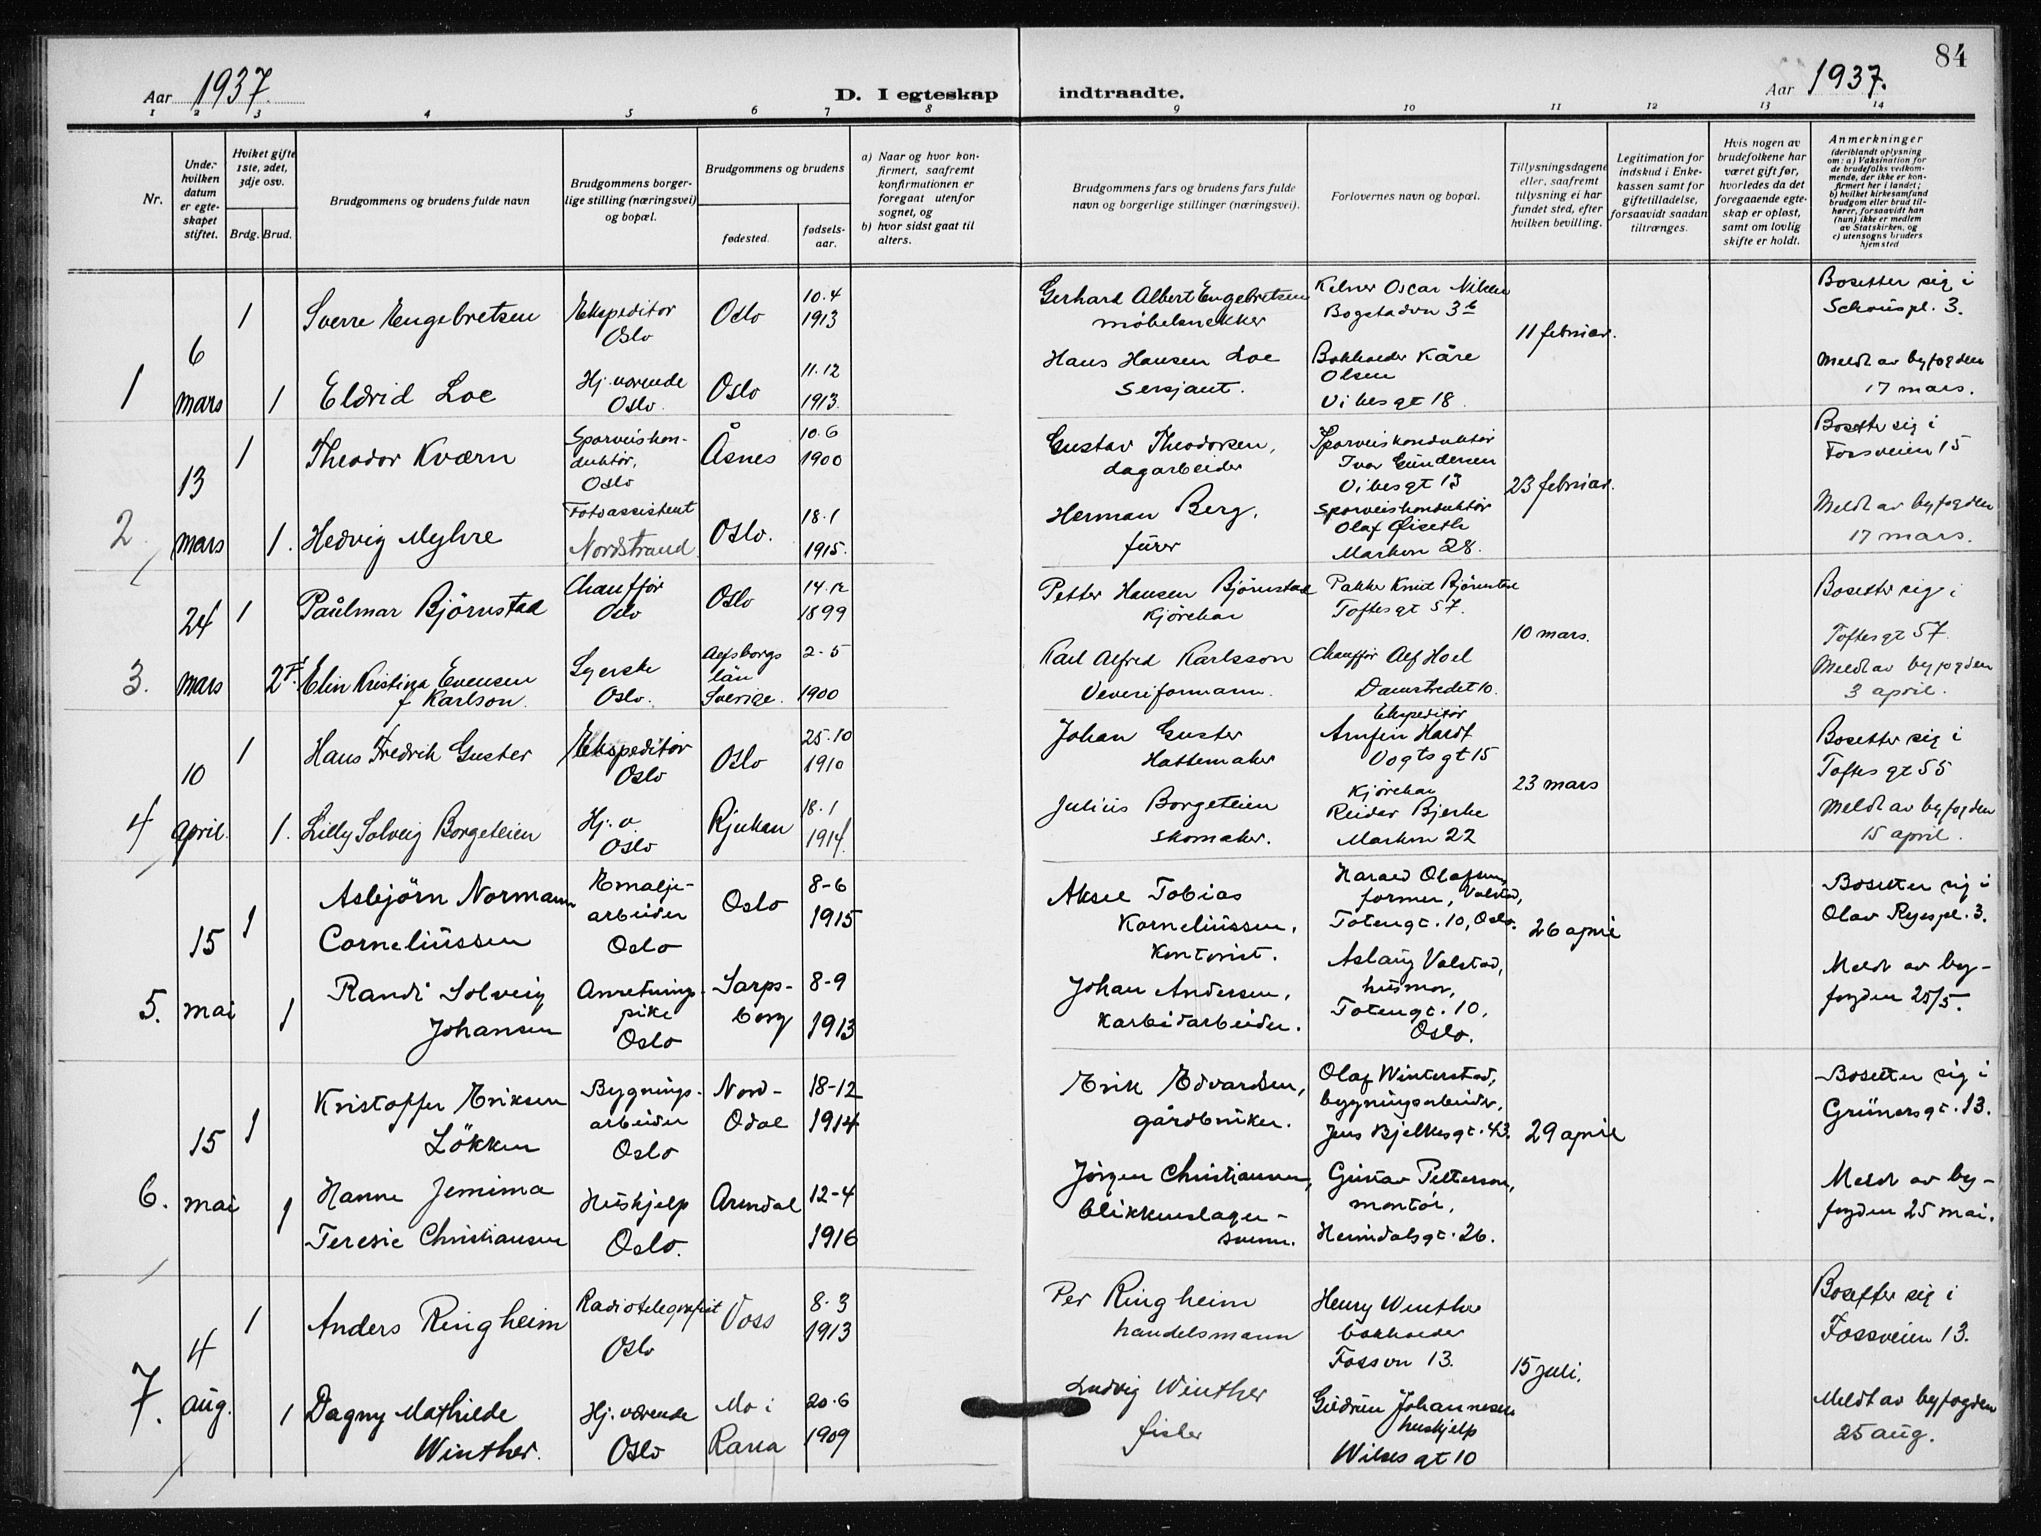 84
Aar 1937.
D. I egteskap indtraadte.
Aar 1937.
1 2 3 4 5 6 7 8 9 10 11 12 13 14
Nr.
Under hvilken datum er egteskapet stiftet.
Hviket gifte 1ste, 2det, 3dje osv.
Brdg. Brud.
Brudgommens og brudens fulde navn
Brudgommens borgerlige stilling (næringsvei) og bopæl.
Brudgommens og brudens
fødested.
fødselsaar.
a) Naar og hvor konfirmert, saafremt konfirmationen er foregaat utenfor sognet, og
b) hvor sidst gaat til alters.
Brudgommens fars og brudens fars fulde navn og borgerlige stillinger (næringsvei).
Forlovernes navn og bopæl.
Tillysningsdagene eller, saafremt tillysning ei har fundet sted, efter hvilken bevilling.
Legitimation for indskud i Enkekassen samt for giftetilladelse, forsaavidt saadan tiltrænges.
Hvis nogen av brudefolkene har været gift før, hvorledes da det foregaaende egteskap er opløst, samt om lovlig skifte er holdt.
Anmerkninger (deriblandt oplysning om: a) Vaksination for de brudefolks vedkommende, der ikke er konfirmert her i landet; b) hvilket kirkesamfund brudgom eller brud tilhører, forsaavidt han (hun) ikke er medlem av Statskirken, og c) utensogns bruders hjemsted
1 6 mars
1 Sverre Engebretsen Ekspeditør Oslo Oslo 10.4 1913
Gerhard Albert Engebretsen møbelsnekker
Kelner Oscar Nilsen Bogstadvn 3b
11 februar.
Bosetter sig i Schouspl. 3.
1 Eldrid Loe Hj. værende Oslo. Oslo 11.12 1913.
Hans Hansen Loe Sersjant.
Bokholder Kåre Olsen Vibes gt 18.
Meldt av byfogden 17 mars.
2. 13 mars
1 Theodor Kværn Sporveiskonduktør, Oslo Åsnes 10.6 1900
Gustav Theodorsen, dagarbeider
Sporveiskonduktør Ivar Gundersen Vibes gt 13
23 februar.
Bosetter sig i Fossveien 15
1. Hedvig Myhre Fotoassistent Nordstrand Oslo. 18.1 1915.
Herman Berg, furer
Sporveiskonduktør Olaf Øiseth Markvn 28.
Meldt av byfogden 17 mars.
3. 24 mars
1 Paulmar Bjørnstad Chauffør Oslo Oslo 14.12 1899
Petter Hansen Bjørnstad Kjørekar
Pakker Knut Bjørnstad Toftes gt 57.
10 mars.
Bosetter sig i Toftes gt 57.
2 Elin Kristina Evensen f Karlson. Syerske Oslo. Aelsborgs län Sverige. 2-5 1900
Karl Alfred Karlsson Veveriformann.
Chauffør Alf Hoel Damstredet 10.
Meldt av byfogden 3 april.
4 10 april.
1 Hans Fredrik Guster Ekspeditør Oslo Oslo 25.10 1910
Johan Guster Hattemaker
Ekspeditør Arnfin Hardt Vogts gt 15
23 mars
Bosetter sig i Toftes gt 55
1. Lilly Solveig Borgeteien Hj. v. Oslo Rjukan 18.1 1914.
Julius Borgeteien skomaker.
Kjørekar Reidar Bjerke Markvn 22
Meldt av byfogden 15 april.
5. 15 mai
1 Asbjörn Normann Corneliussen Emaljearbeider Oslo Oslo 8-6 1915
Aksel Tobias Korneliussen, kontorist.
Harald Olafsen, former, Volstad, Totengt. 10, Oslo.
26 april
Bosetter sig i Olav Ryespl. 3.
1 Randi Solveig Johansen Anretningspike Oslo Sarpsborg 8-9 1913
Johan Andersen, karbidarbeider.
Aslaug Volstad, husmor, Totengt. 10, Oslo.
Meldt av byfogden 25/5.
6. 15 mai
1 Kristoffer Eriksen Lökken Bygningsarbeider Oslo Nord-Odal 18-12 1914
Erik Edvardsen, gårdbruker.
Olaf Winterstad, bygningsarbeider, Jens Bjelkesgt. 43.
29 april
Bosetter sig i Grünersgt. 13.
1 Hanne Jemima Teresie Christiansen Huskjelp Oslo. Arendal 12-4 1916
Jörgen Christiansen, blikkenslagersvenn.
Gustav Petterson, montör, Heimdalsgt. 26.
Meldt av byfogden 25 mai.
7. 4 aug.
1 Anders Ringheim Radiotelegrafist Oslo Voss 8.3 1913
Per Ringheim handelsmann
Henry Winther bokholder Fossvn 13.
15 juli.
Bosetter sig i Fossveien 13.
1 Dagny Mathilde Winther. Hj. værende Oslo Mo i Rana 20.6 1909
Ludvig Winther fisker
Gudrun Johannesen huskjelp Wilses gt 10
Meldt av byfogden 25 aug.